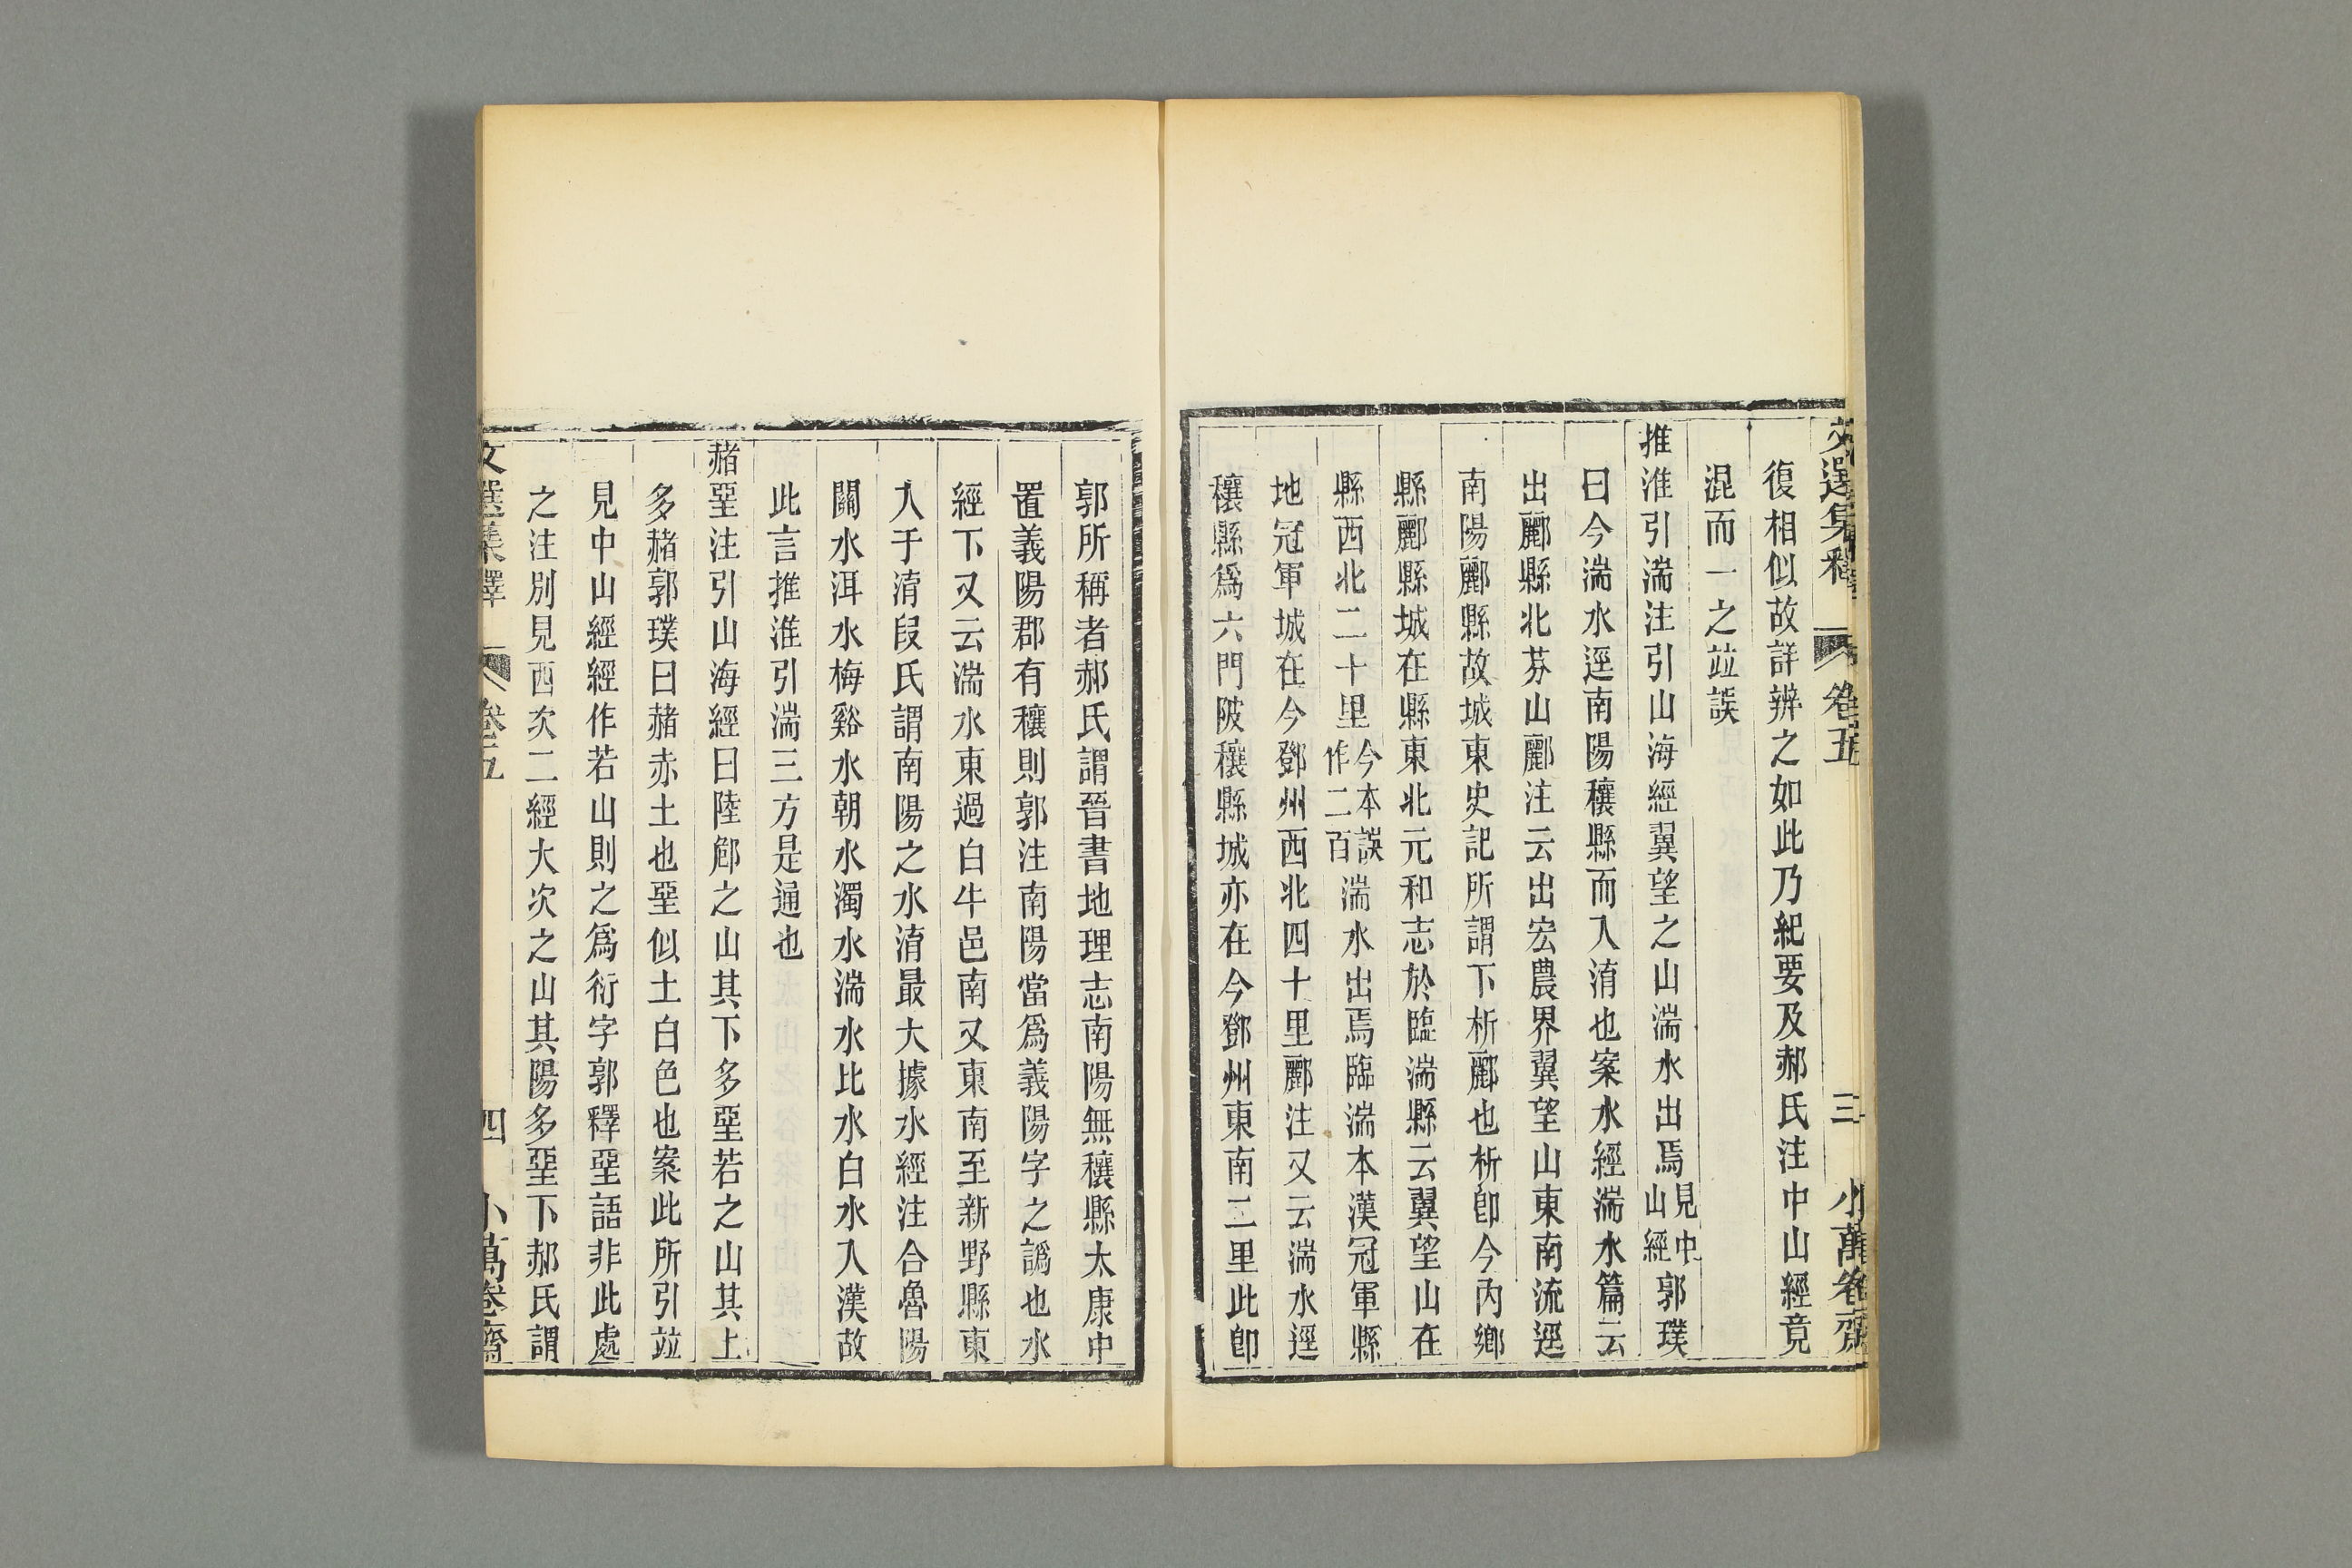 文選集釋 卷五 三 小萬卷齋
復相似故詳辨之如此乃紀要及郝氏注中山經竟
混而一之竝誤
推淮引湍注引山海經翼望之山湍水出焉見中山經郭璞
曰今湍水逕南陽穰縣而入淯也案水經湍水篇云
出酈縣北芬山酈注云出宏農界翼望山東南流逕
南陽酈縣故城東史記所謂下析酈也析卽今內鄉
縣酈縣城在縣東北元和志於臨湍縣云翼望山在
縣西北二十里今本誤作二百湍水出焉臨湍本漢冠軍縣
地冠軍城在今鄧州西北四十里酈注又云湍水逕
穰縣爲六門陂穰縣城亦在今鄧州東南二里此卽
郭所稱者郝氏謂晉書地理志南陽無穰縣太康中
置義陽郡有穰則郭注南陽當爲義陽字之譌也水
經下又云湍水東過白牛邑南又東南至新野縣東
入于淯段氏謂南陽之水淯最大據水經注合魯陽
關水洱水梅谿水朝水濁水湍水比水白水入漢故
此言推淮引湍三方是通也
赭堊注引山海經曰陸䣀之山其下多堊若之山其上
多赭郭璞曰赭赤土也堊似土白色也案此所引竝
見中山經經作若山則之爲衍字郭釋堊語非此處
之注別見西次二經大次之山其陽多堊下郝氏謂
文選集釋 卷五 四 小萬卷齋